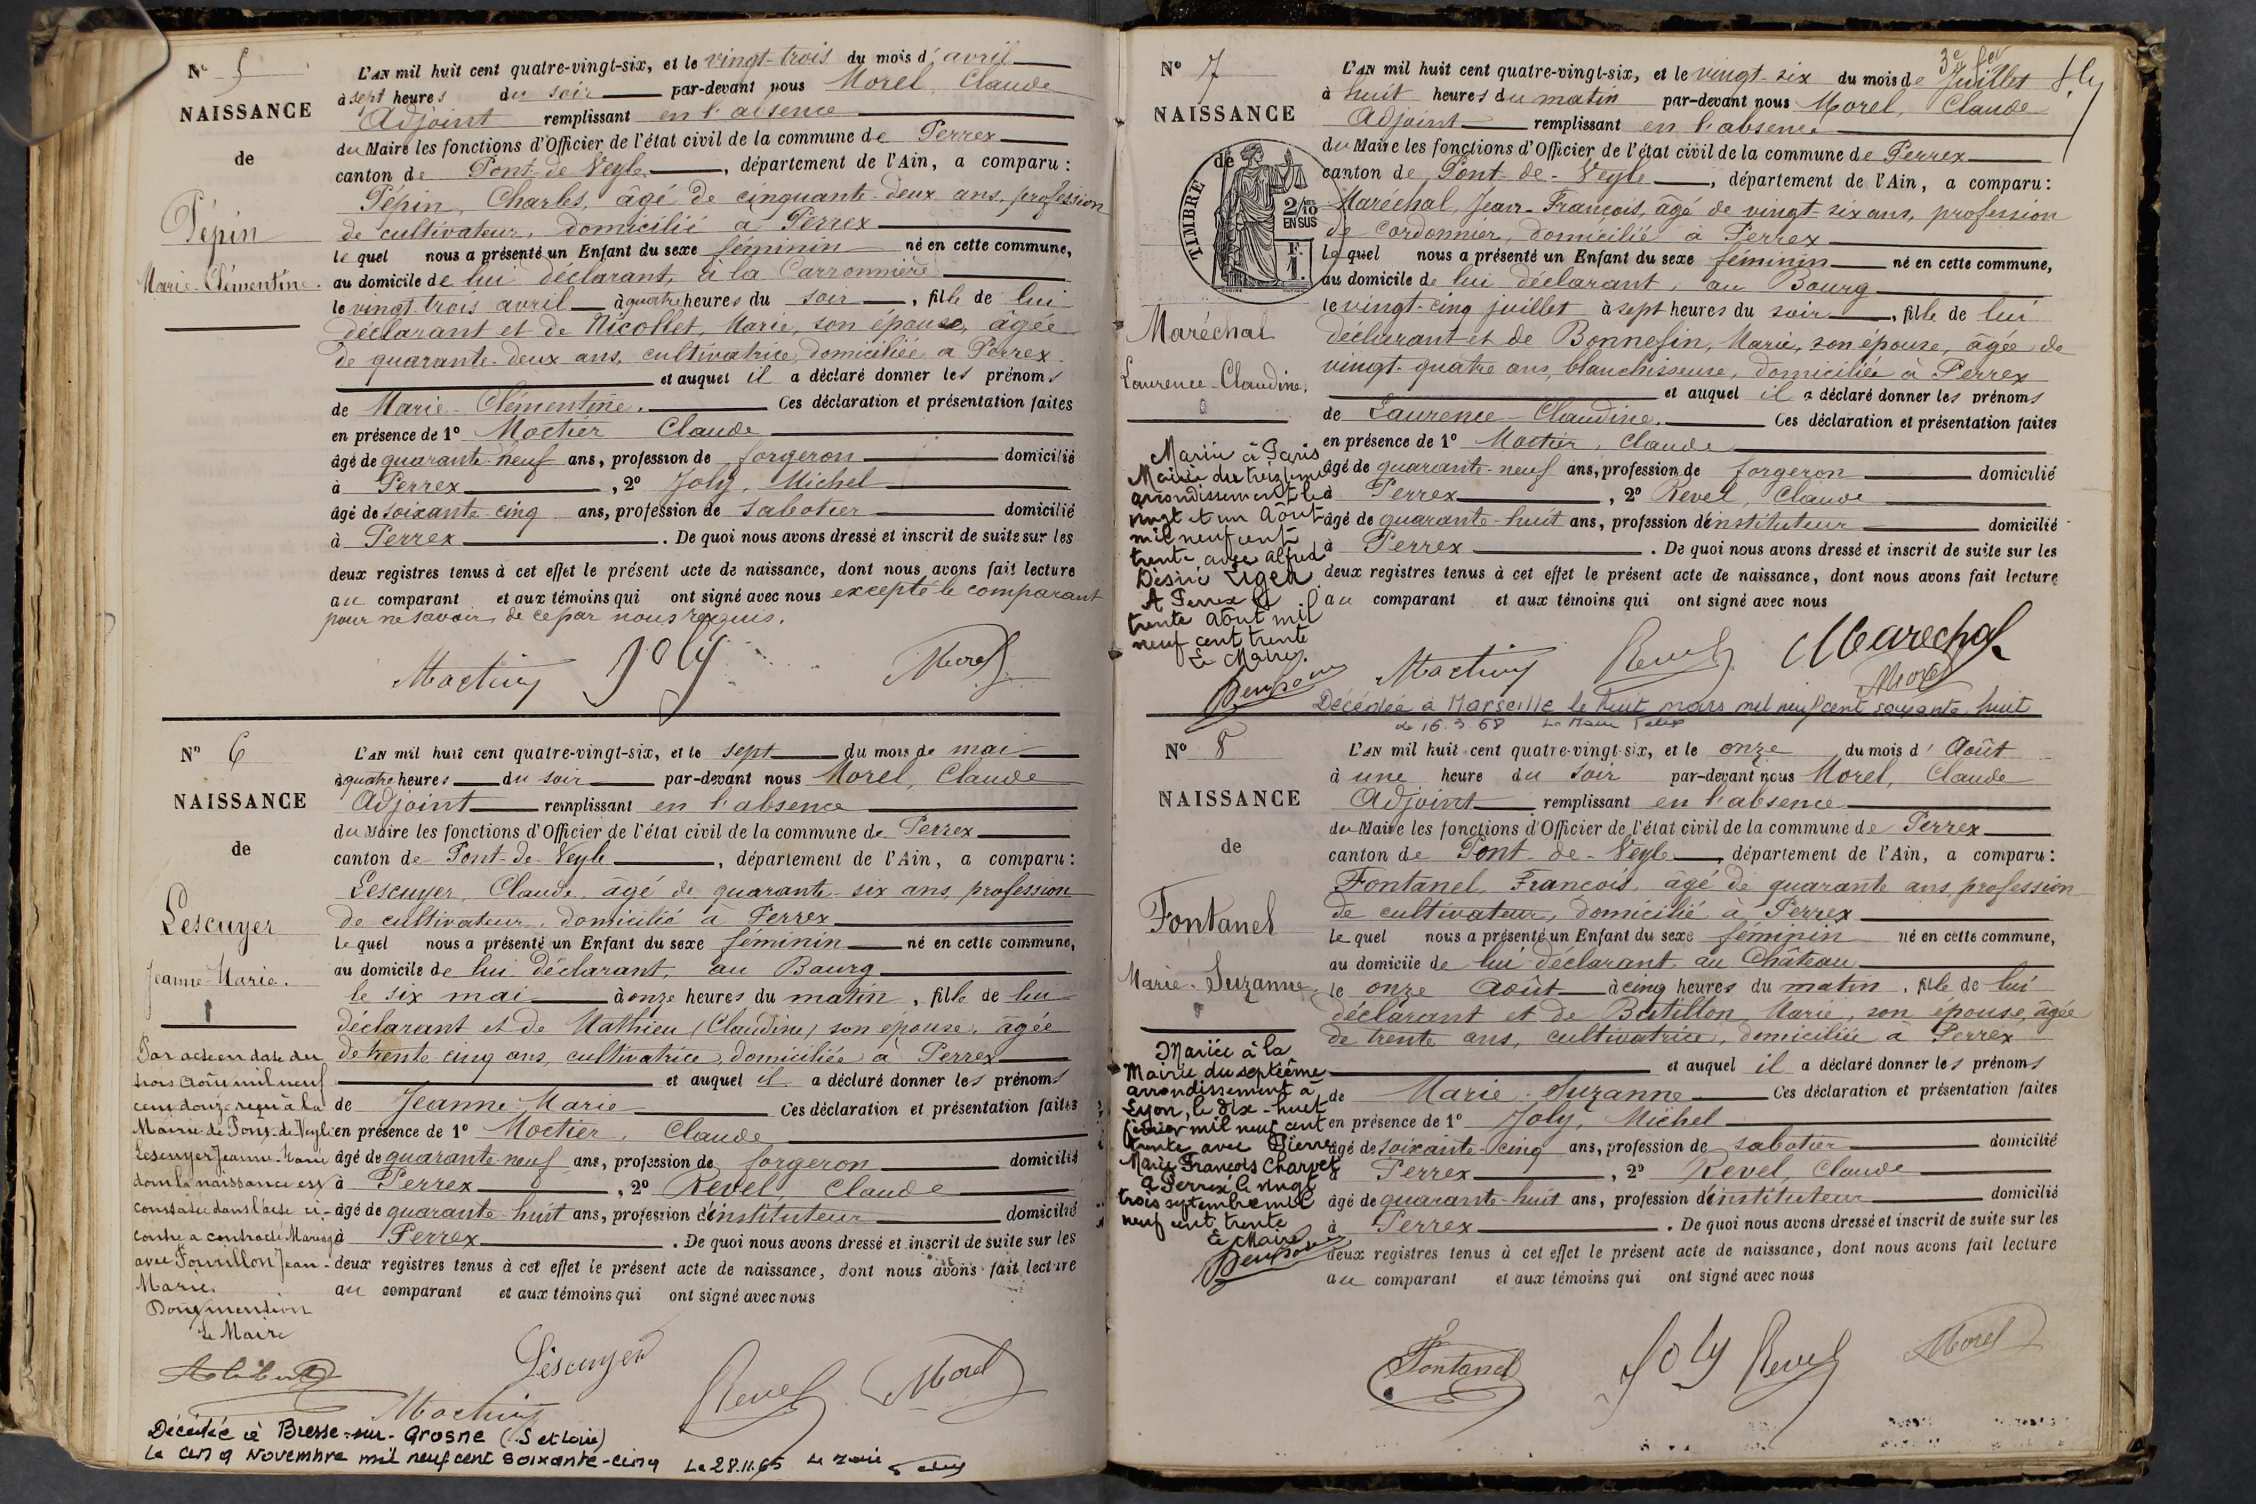 N° 5
NAISSANCE
de
Pépin
Marie-Clémentine.
L'AN mil huit cent quatre-vingt-six, et le vingt-trois du mois d'avril
à sept heures du soir par-devant nous Morel, Claude
Adjoint remplissant en l'absence
du Maire les fonctions d'Officier de l'état civil de la commune de Perrex
canton de Pont-de-Veyle, département de l'Ain, a comparu :
Pépin, Charles, âgé de cinquante-deux ans, profession
de cultivateur, domicilié à Perrex
lequel nous a présenté un Enfant du sexe féminin né en cette commune,
au domicile de lui déclarant, à la Carronnière
le vingt trois avril à quatre heures du soir, fille de lui
déclarant et de Nicollet, Marie, son épouse, âgée
de quarante-deux ans, cultivatrice, domiciliée à Perrex
et auquel il a déclaré donner les prénoms
de Marie-Clémentine. Ces déclaration et présentation faites
en présence de 1° Moctier Claude
âgé de quarante-neuf ans, profession de forgeron domicilié
à Perrex, 2° Joly, Michel
âgé de soixante-cinq ans, profession de sabotier domicilié
à Perrex. De quoi nous avons dressé et inscrit de suite sur les
deux registres tenus à cet effet le présent acte de naissance, dont nous avons fait lecture
au comparant et aux témoins qui ont signé avec nous excepté le comparant
pour ne savoir, de ce par nous requis.
Joly Morel
N° 6
NAISSANCE
de
Lescuyer
Jeanne-Marie.
L'AN mil huit cent quatre-vingt-six, et le sept du mois de mai
à quatre heures du soir par-devant nous Morel, Claude
Adjoint remplissant en l'absence
du Maire les fonctions d'Officier de l'état civil de la commune de Perrex
canton de Pont-de-Veyle, département de l'Ain, a comparu :
Lescuyer, Claude, âgé de quarante-six ans, profession
de cultivateur, domicilié à Perrex
lequel nous a présenté un Enfant du sexe féminin né en cette commune,
au domicile de lui déclarant, au Bourg
le six mai à onze heures du matin, fille de lui
déclarant et de Mathieu (Claudine) son épouse, âgée
de trente-cinq ans, cultivatrice, domiciliée à Perrex
et auquel il a déclaré donner les prénoms
de Jeanne Marie Ces déclaration et présentation faites
en présence de 1° Moctier, Claude
âgé de quarante-neuf ans, profession de forgeron domicilié
à Perrex, 2° Revel, Claude
âgé de quarante-huit ans, profession d'instituteur domicilié
à Perrex. De quoi nous avons dressé et inscrit de suite sur les
deux registres tenus à cet effet le présent acte de naissance, dont nous avons fait lecture
au comparant et aux témoins qui ont signé avec nous
Par acte en date du
trois août mil neuf
cent douze reçu à la
Mairie de Pont-de-Veyle
Lescuyer Jeanne-Marie
dont la naissance est
constatée dans l'acte ci-
contre a contracté Mariage
avec Jean-
Marie.
Dont mention
Le Maire
Lescuyer
Revel Morel
Décédée à Bresse-sur-Grosne (S et Loire)
le cinq Novembre mil neuf cent soixante-cinq Le 28.11.65 Le Maire
N° 7
NAISSANCE
de
TIMBRE
2/10 EN SUS
F. 1.
Maréchal
Laurence-Claudine.
L'AN mil huit cent quatre-vingt-six, et le vingt-six du mois de Juillet
à huit heures du matin par-devant nous Morel, Claude
Adjoint remplissant en l'absence
du Maire les fonctions d'Officier de l'état civil de la commune de Perrex
canton de Pont-de-Veyle, département de l'Ain, a comparu :
Maréchal, Jean-François, âgé de vingt-six ans, profession
de cordonnier, domicilié à Perrex
lequel nous a présenté un Enfant du sexe féminin né en cette commune,
au domicile de lui déclarant, au Bourg
le vingt-cinq juillet à sept heures du soir, fille de lui
déclarant et de Bonnefin, Marie, son épouse, âgée de
vingt-quatre ans, blanchisseuse, domiciliée à Perrex
et auquel il a déclaré donner les prénoms
de Laurence-Claudine. Ces déclaration et présentation faites
en présence de 1° Moctier, Claude
âgé de quarante-neuf ans, profession de forgeron domicilié
à Perrex, 2° Revel, Claude
âgé de quarante-huit ans, profession d'instituteur domicilié
à Perrex. De quoi nous avons dressé et inscrit de suite sur les
deux registres tenus à cet effet le présent acte de naissance, dont nous avons fait lecture
au comparant et aux témoins qui ont signé avec nous
Mariée à Paris
Mairie du treizième
arrondissement le
vingt et un Août
mil neuf cent
trente avec Alfred
Désiré Liger
A Perrex le
trente Août mil
neuf cent trente
Le Maire.
Revel Marechal
Morel
Décédée à Marseille le huit mars mil neuf cent soixante huit
le 16.3.68 Le Maire
N° 8
NAISSANCE
de
Fontanel
Marie-Suzanne.
L'AN mil huit cent quatre-vingt-six, et le onze du mois d'Août
à une heure du soir par-devant nous Morel, Claude
Adjoint remplissant en l'absence
du Maire les fonctions d'Officier de l'état civil de la commune de Perrex
canton de Pont-de-Veyle, département de l'Ain, a comparu :
Fontanel, François, âgé de quarante ans, profession
de cultivateur, domicilié à Perrex
lequel nous a présenté un Enfant du sexe féminin né en cette commune,
au domicile de lui déclarant, au Château
le onze Août à cinq heures du matin, fille de lui
déclarant et de Batillon, Marie, son épouse, âgée
de trente ans, cultivatrice, domiciliée à Perrex
et auquel il a déclaré donner les prénoms
de Marie-Suzanne Ces déclaration et présentation faites
en présence de 1° Joly, Michel
âgé de soixante-cinq ans, profession de sabotier domicilié
à Perrex, 2° Revel, Claude
âgé de quarante-huit ans, profession d'instituteur domicilié
à Perrex. De quoi nous avons dressé et inscrit de suite sur les
deux registres tenus à cet effet le présent acte de naissance, dont nous avons fait lecture
au comparant et aux témoins qui ont signé avec nous
Mariée à la
Mairie du septième
arrondissement à
Lyon, le dix-huit
février mil neuf cent
trente avec Pierre
Marie François Charvet
A Perrex le vingt
trois septembre mil
neuf cent trente
Le Maire
Fontanel Joly Revel Morel